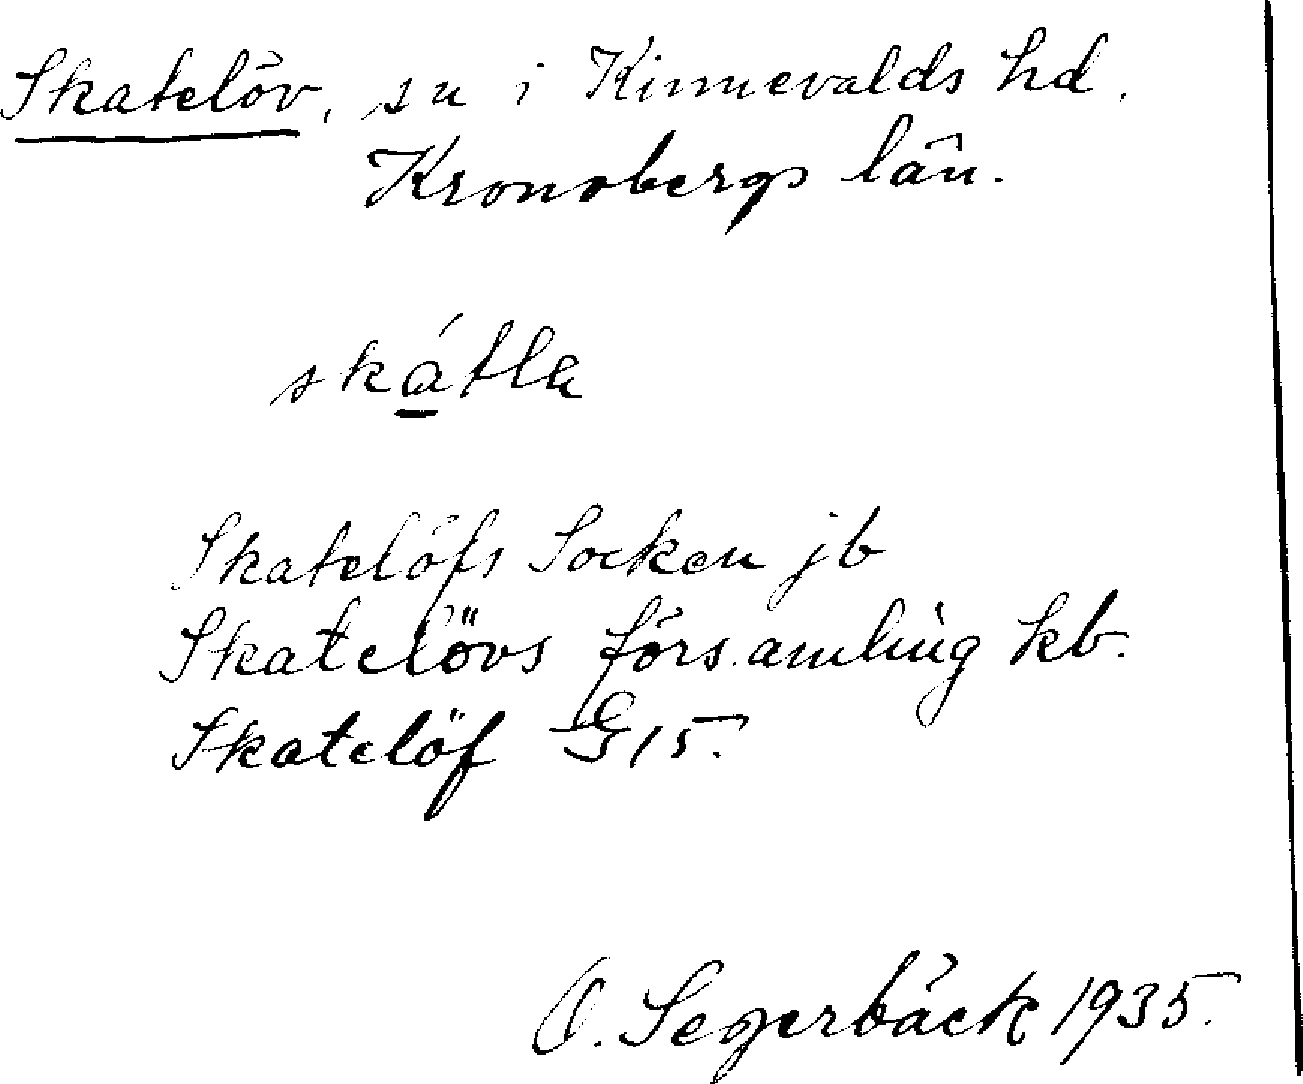 Skatelöv, sn i Kinnevalds hd.
Kronobergs län.
skátla
Skatelöfs Socken jb
Skatelövs församling kb.
Skatelöf G 15.
O. Segerbäck 1935.